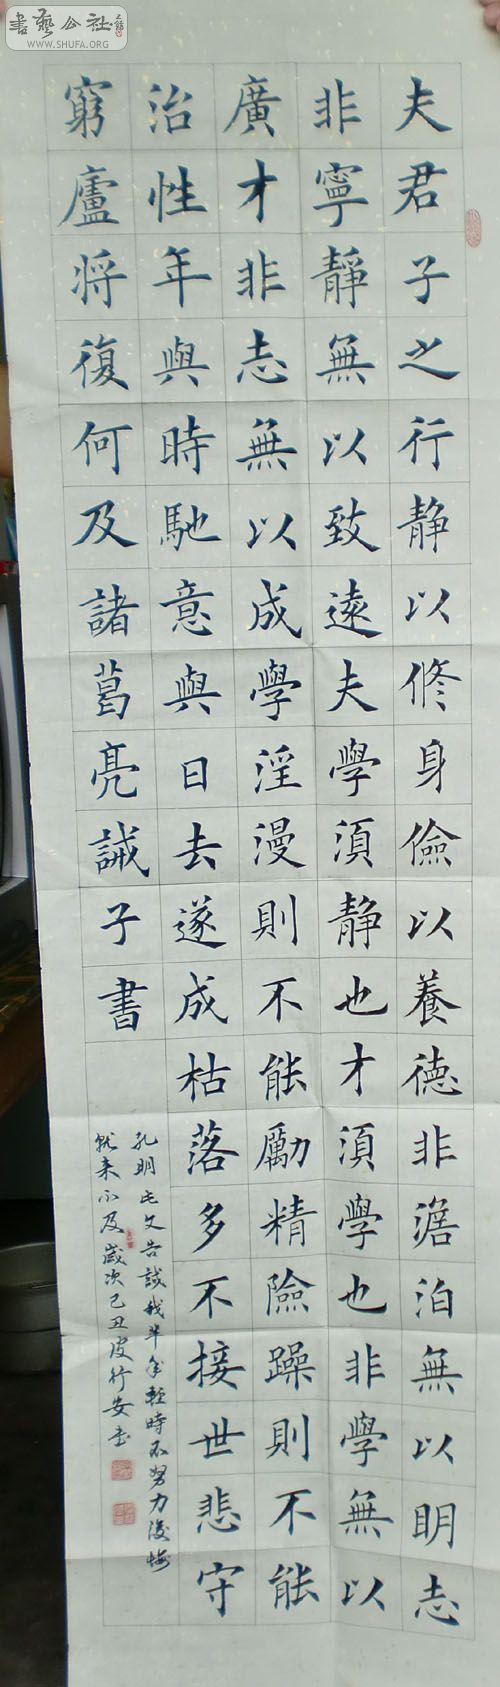 夫君子之行静以修身儉以養德非澹泊無以明志
非寧靜無以致遠夫學須静也才須學也非學無以
廣才非志無以成學淫漫則不能勵精險躁則不能
治性年與時馳意與日去遂成枯落多不接世悲守
窮廬将復何及諸葛亮誡子書
孔明此文告誡我年輕時不努力後悔
就来不及歲次己丑皮行安書
書藝公社
WWW.SHUFA.ORG